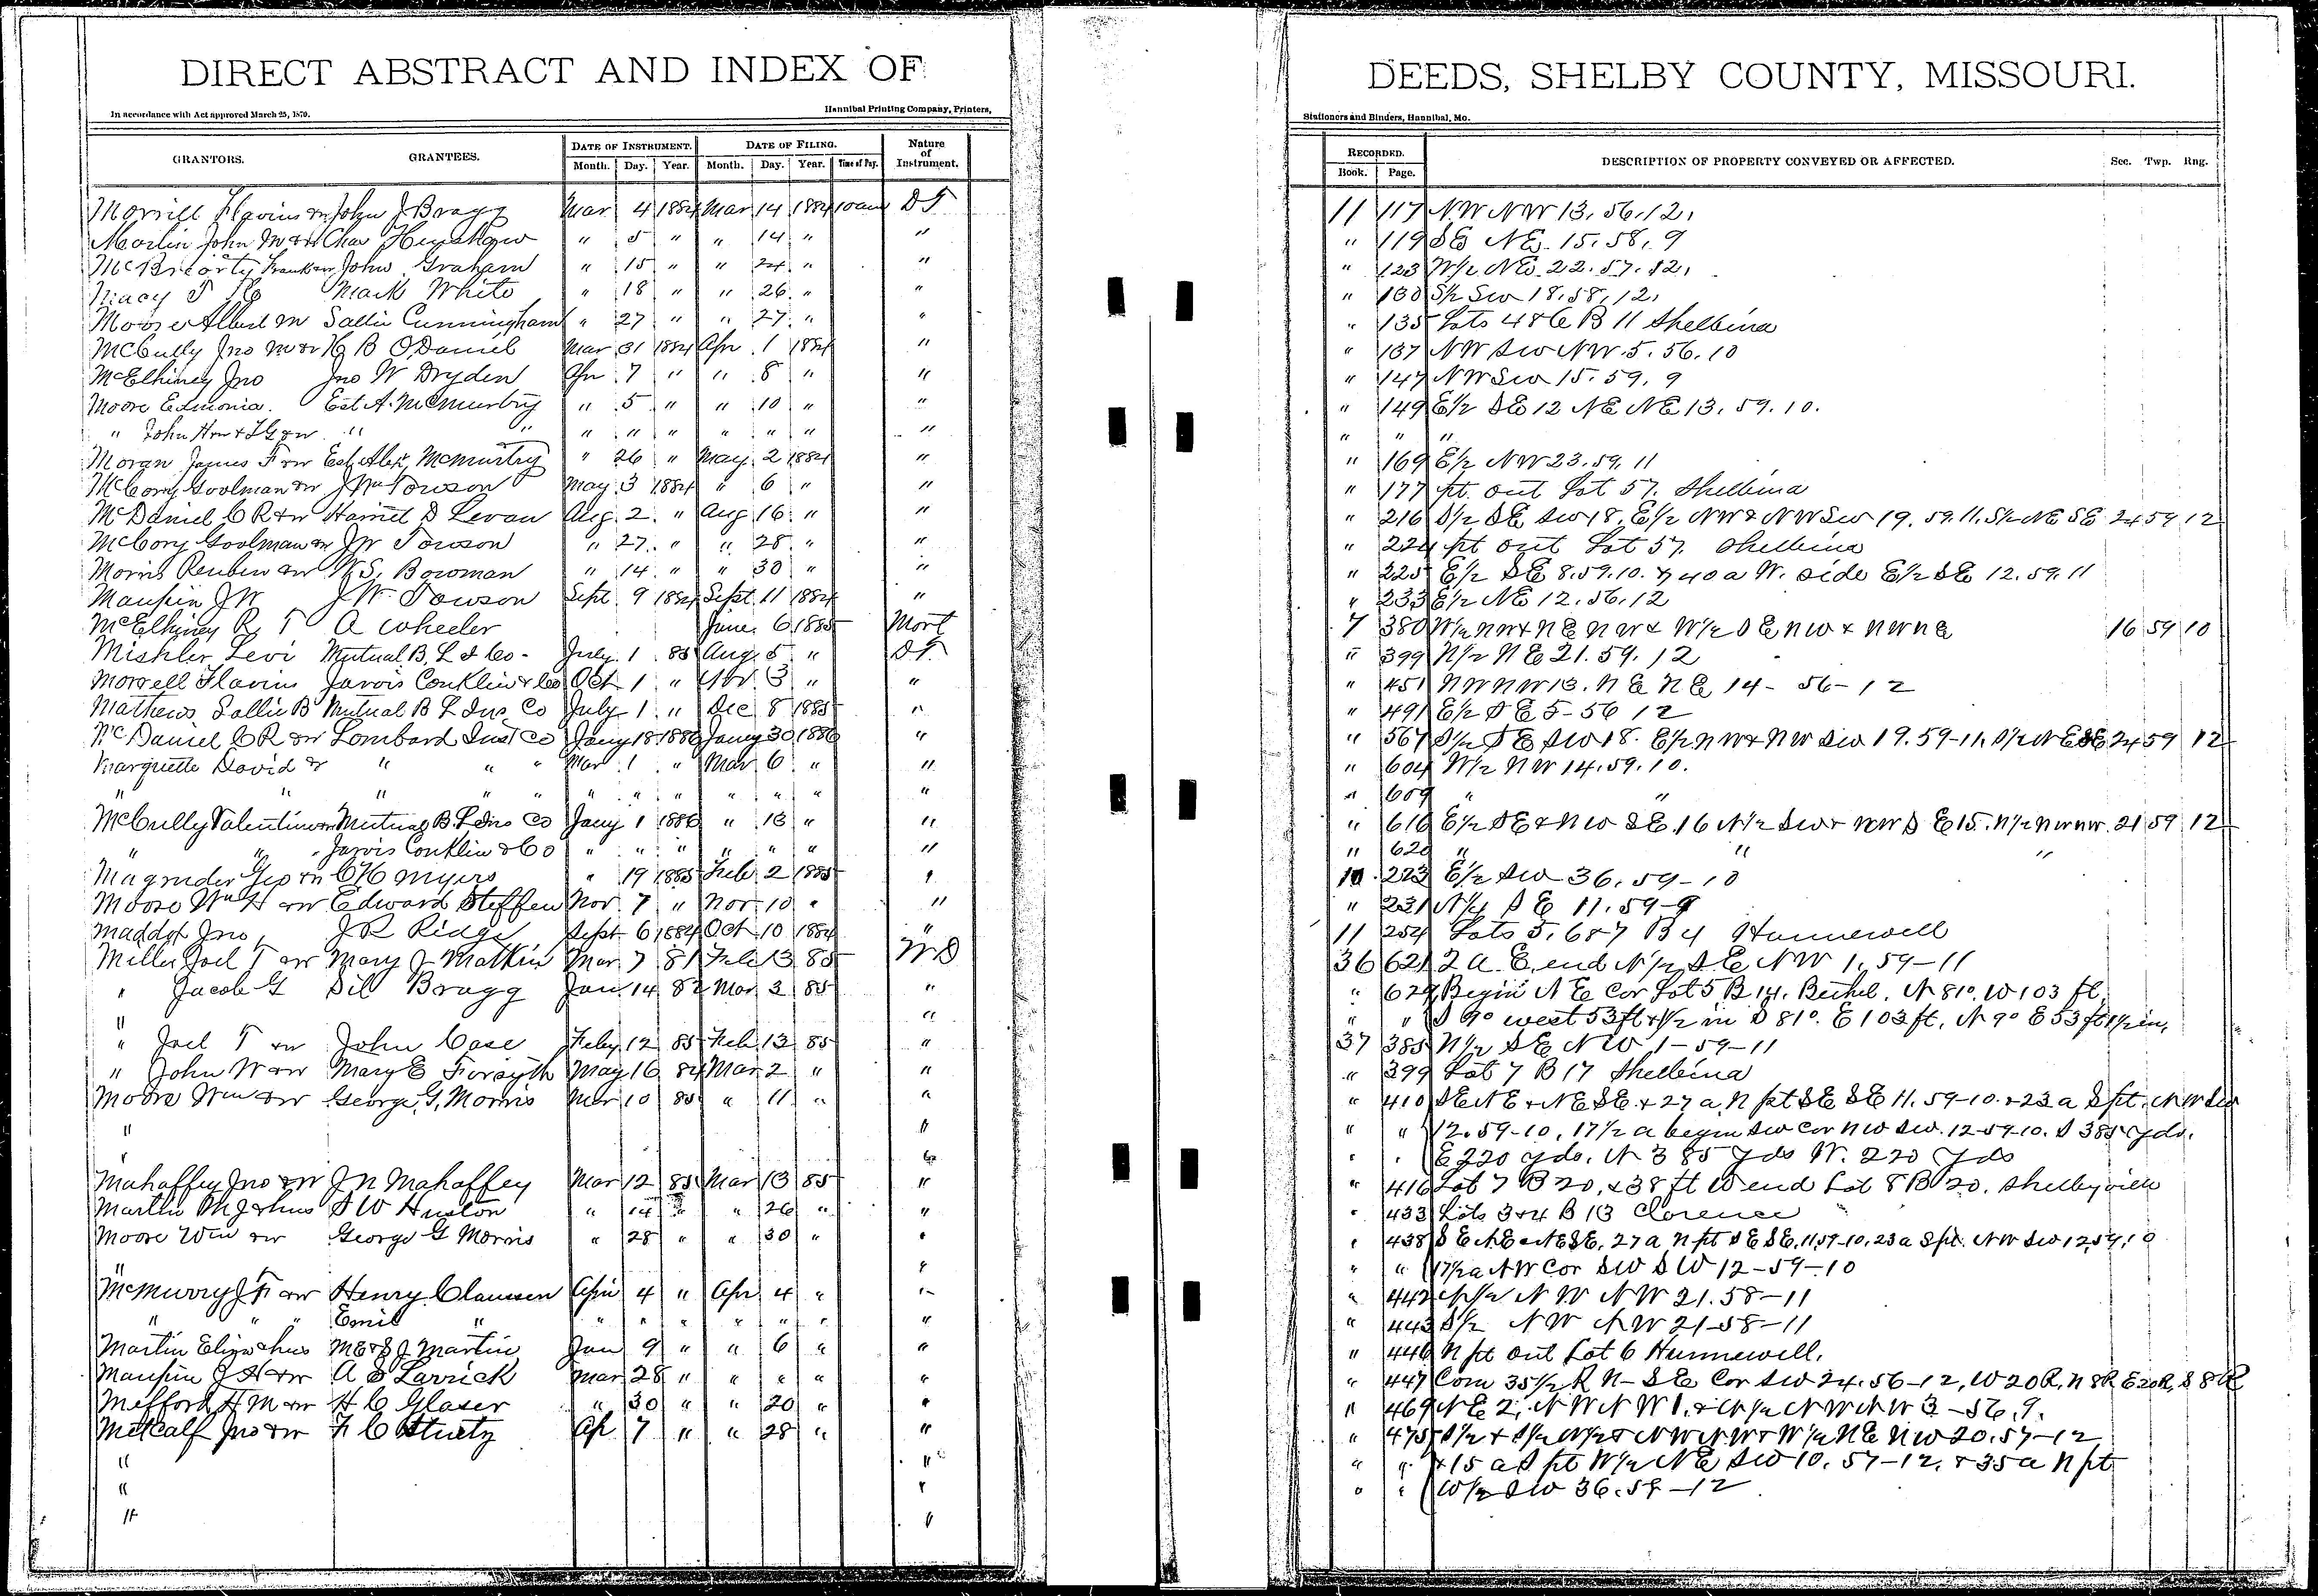 DIRECT ABSTRACT AND INDEX OF
In accordance with Act approved March 25, 1870. Hannibal Printing Company, Printers,
GRANTORS. GRANTEES. DATE OF INSTRUMENT. DATE OF FILING. Nature of Instrument.
Month. Day. Year. Month. Day. Year. Time of Day.
Morrill Flavius &w John J Bragg Mar 4 1884 Mar 14 1884 10am DT
Marlin John M &w Chas Henshaw " 5 " " 14 " "
McBriarty Frank &w John Graham " 15 " " 24 " "
Macy T Mark White " 18 " " 26 " "
Moore Albert M Sallie Cunningham " 27 " " 27 " "
McCully Jno M &w B O'Daniel Mar 31 1884 Apr 1 1884 "
McElhiney Jno Jno W Dryden Apr 7 " " 8 " "
Moore Edmonia. Est A. McMurtry " 5 " " 10 " "
" John H &w & &w " " " " " " " " "
Moran James F &w Est Alex McMurtry " 26 " May 2 1884 "
McCory Goolman &w J W Towson May 3 1884 " 6 " "
McDaniel C R &w Harriet D Levan Aug 2 " Aug 16 " "
McCory Goolman &w J W Towson " 27 " " 28 " "
Morris Reuben &w W S. Bowman " 14 " " 30 " "
Maupin J W J W Towson Sept 9 1884 Sept 11 1884 "
McElhiney R. T A Wheeler June 6 1885 Mort
Mishler Levi Mutual B. L I Co July 1 85 Aug 5 " DT
Morrell Flavius Jarvis Conklin & Co Oct 1 " Nov 3 " "
Mathews Sallie B Mutual B L Ins Co July 1 " Dec 8 1885 "
McDaniel C R &w Lombard Inst Co Jany 18 1886 Jany 30 1886 "
Marquette David & " " " Mar 1 " Mar 6 " "
" " " " " " " " " " " "
McCully Valentine &w Mutual B L Ins Co Jany 1 1886 " 13 " "
" " Jarvis Conklin & Co " " " " " " "
Magruder Geo &w C H Myers " 19 1885 Feb 2 1885 "
Moore Wm H &w Edward Steffen Nov 7 " Nov 10 " "
Maddox Jno, J R Ridge Sept 6 1884 Oct 10 1884 "
Miller Joel T &w Mary J Matkin Mar 7 81 Feb 13 85 WD
" Jacob G Sil Bragg Jan 14 82 Mar 3 85 "
" "
" Joel T &w John Case Feby 12 85 Feb 13 85 "
" John W &w Mary E Forsyth May 16 84 Mar 2 " "
Moore Wm &w George G. Morris Mar 10 85 " 11 " "
" "
" "
Mahaffey Jno &w J N Mahaffey Mar 12 85 Mar 13 85 "
Martin M J & hus S W Huston " 14 " " 26 " "
Moore Wm &w George G Morris " 28 " " 30 " "
" "
McMurry J F &w Henry Claussen Apri 4 " Apr 4 " "
" " " Emil " " " " " " " "
Martin Eliza & hus M E & S J Martin Jan 9 " " 6 " "
Maupin J H &w A S Larrick Mar 28 " " " " "
Mefford H M &w H C Glaser " 30 " " 20 " "
Metcalf Jno &w F C Stuetz Ap 7 " " 28 " "
" "
" "
" "
DEEDS, SHELBY COUNTY, MISSOURI.
Stationers and Binders, Hannibal, Mo.
RECORDED. DESCRIPTION OF PROPERTY CONVEYED OR AFFECTED. Sec. Twp. Rng.
Book. Page.
11 117 NW NW 13. 56. 12.
" 119 SE NE. 15. 58. 9
" 123 W/2 NE 22. 57. 12.
" 130 S/2 SW 18. 58. 12.
" 135 Lots 4 & 6 B 11 Shelbina
" 137 NW SW NW 5. 56. 10
" 147 NW SW 15. 59. 9
" 149 E/2 SE 12 NE NE 13. 59. 10.
" " "
" 169 E/2 NW 23. 59. 11
" 177 pt out Lot 57. Shelbina
" 216 S/2 SE SW 18. E/2 NW & NW SW 19. 59. 11. S/2 NE SE 24 59 12
" 224 pt out Lot 57. Shelbina
" 225 E/2 SE 8. 59. 10. & 40 a W. side E/2 SE 12. 59. 11
" 233 E/2 NE 12. 56. 12
7 380 W/2 NW & NE NW & W/2 SE NW & NW NE 16 59 10
" 399 N/2 NE 21. 59. 12
" 451 NW NW 13. NE NE 14 - 56 - 12
" 491 E/2 SE 5 - 56 12
" 567 S/2 SE SW 18. E/2 NW & NW SW 19. 59 - 11. S/2 NE SE 24 59 12
" 604 W/2 NW 14. 59. 10.
" 609 " "
" 616 E/2 SE & NW SE. 16 N/2 SW & NW SE 15. N/2 NW NW. 21 59 12
" 620 " " "
10 223 E/2 SW 36. 59 - 10
" 231 N/4 SE 11. 59 - 9
11 254 Lots 5. 6 & 7 B 4 Hunnewell
36 621 2 a E. end N/2 SE NW 1. 59 - 11
" 629 Begin NE Cor Lot 5 B 14. Bethel. N 81°. W 103 ft.
" " S 9° west 53 ft 1 1/2 in S 81°. E 103 ft. N 9° E 53 ft 1 1/2 in.
37 385 N/2 SE NW 1 - 59 - 11
" 399 Lot 7 B 17 Shelbina
" 410 SE NE & NE SE. & 27 a N pt SE SE 11. 59 - 10. & 23 a S pt. NW SW
" " 12. 59 - 10, 17 1/2 a begin SW cor NW SW. 12 - 59 - 10. S 385 yds.
" " E 220 yds. N 385 yds W. 220 yds
" 416 Lot 7 B 20, & 38 ft W end Lot 8 B 20. Shelbyville
" 433 Lots 3 & 4 B 13 Clarence
" 438 SE NE & NE SE. 27 a N pt SE SE. 11. 59 - 10. 23 a S pt. NW SW 12. 59. 10
" " 17 1/2 a NW Cor SW SW 12 - 59 - 10
" 442 N/2 NW NW 21. 58 - 11
" 443 S/2 NW NW 21 - 58 - 11
" 446 N pt out Lot 6 Hunnewell.
" 447 Com 35 1/2 R N - SE Cor SW 24. 56 - 12, W 20 R, N 8 R E 20 R, S 8 R
" 469 NE 2, NW NW 1. & N/2 NW NW 3 - 56. 9.
" 475 S/2 & S/2 N/2 & NW NW & W/2 NE NW 20. 57 - 12
" " & 15 a S pt W/2 NE SW 10. 57 - 12. & 35 a N pt
" " W/2 SW 36. 58 - 12